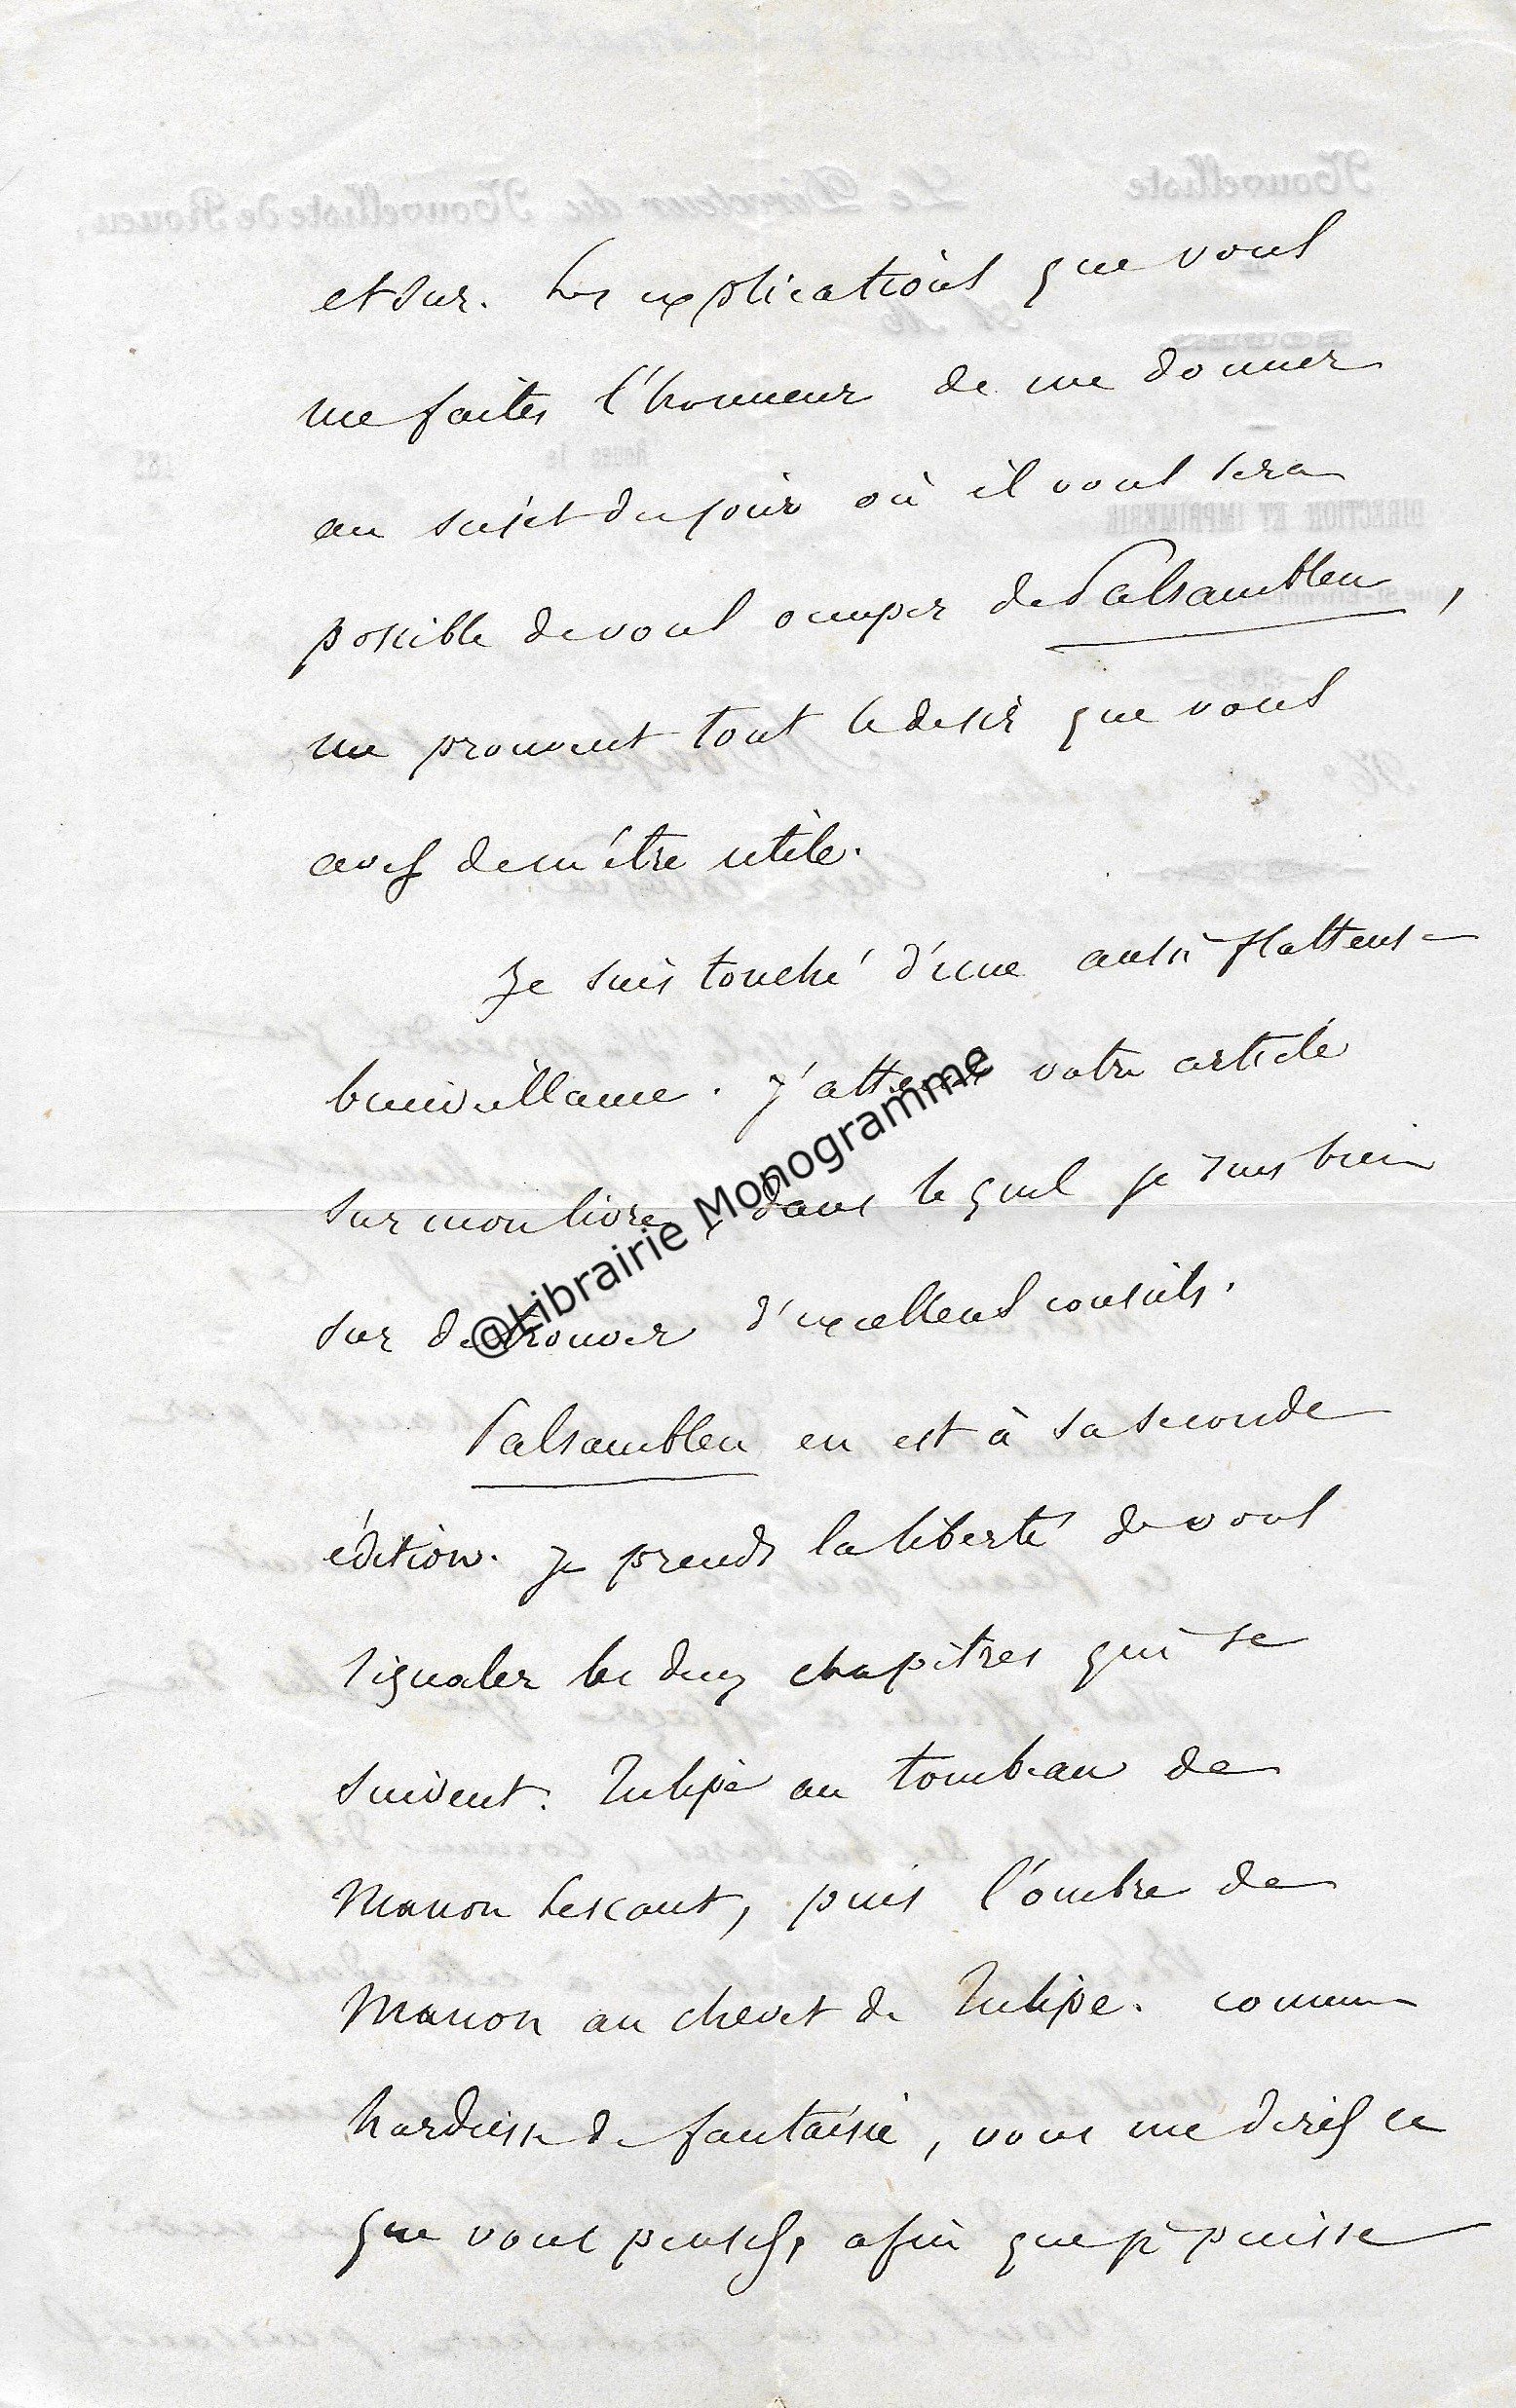 et sur. Les explications que vous
me faites l'honneur de me donner
au sujet du jour où il vous sera
possible de vous occuper de Palsambleu,
me prouvent tout le desir que vous
avez de m'être utile.
Je suis touché d'une aussi flatteuse
bienveillance. J'attends votre article
sur mon livre, dans lequel je suis bien
sur de trouver d'excellens conseils.
Palsambleu en est à sa seconde
édition. Je prends la liberté de vous
signaler les deux chapitres qui se
suivent: Tulipe au tombeau de
Manon Lescaut, puis l'ombre de
Manon au chevet de Tulipe. comme
hardiesse de fantaisie, vous me direz ce
que vous pensez, afin que je puisse
@Librairie Monogramme